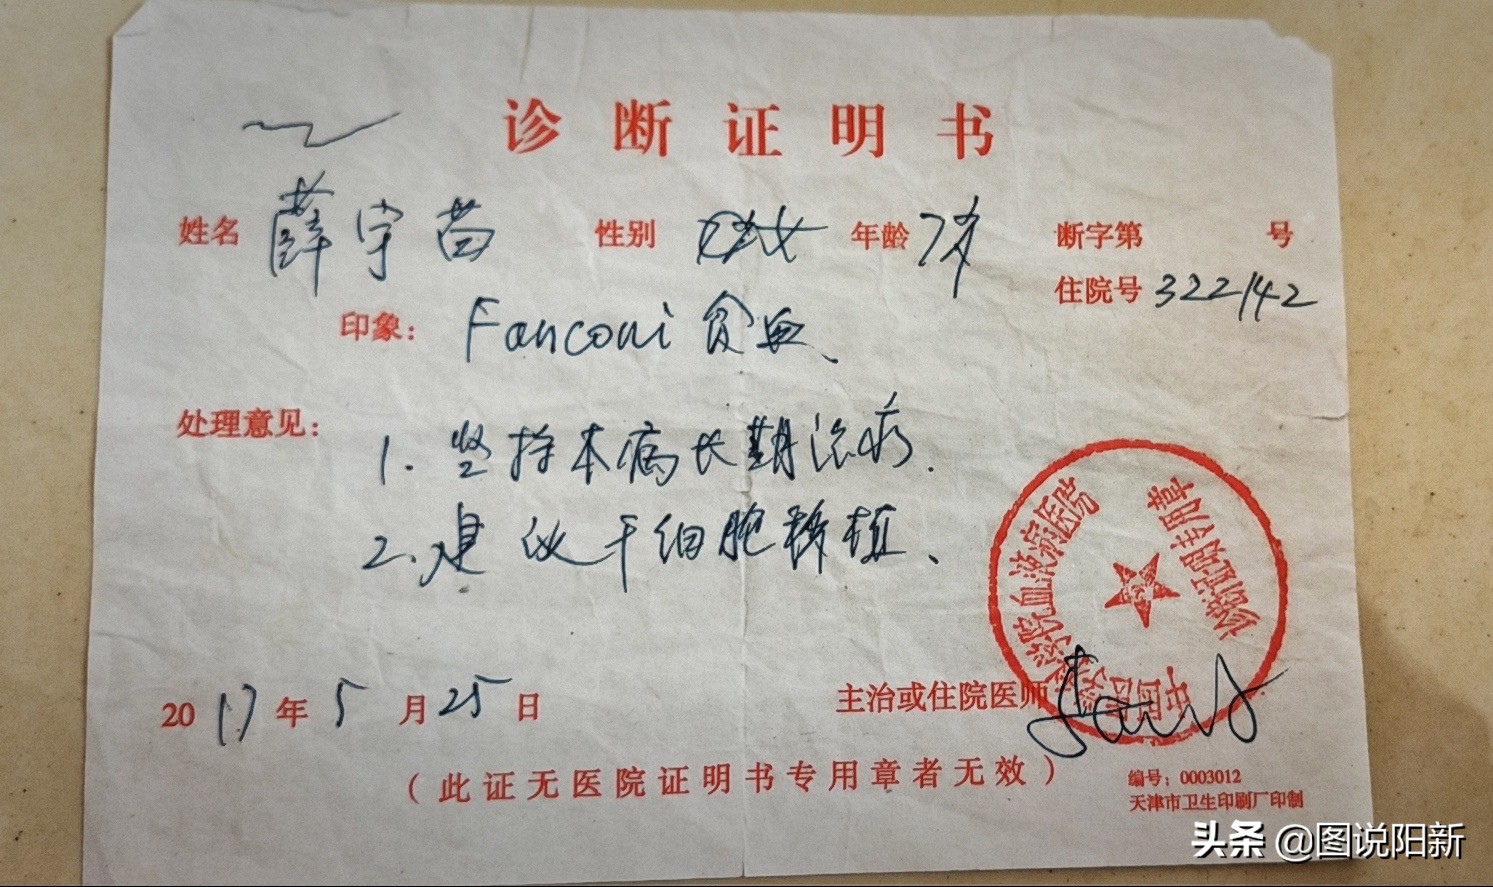 诊断证明书
姓名 薛宇苗 性别 女 年龄 7岁 断字第 号
住院号 322142
印象: Fanconi 贫血、
处理意见:
1. 坚持本病长期治疗.
2. 建议干细胞移植、
中国医学科学院血液病医院
诊断证明专用章
2017年5月25日
主治或住院医师
(此证无医院证明书专用章者无效)
编号: 0003012
天津市卫生印刷厂印制
头条 @图说阳新